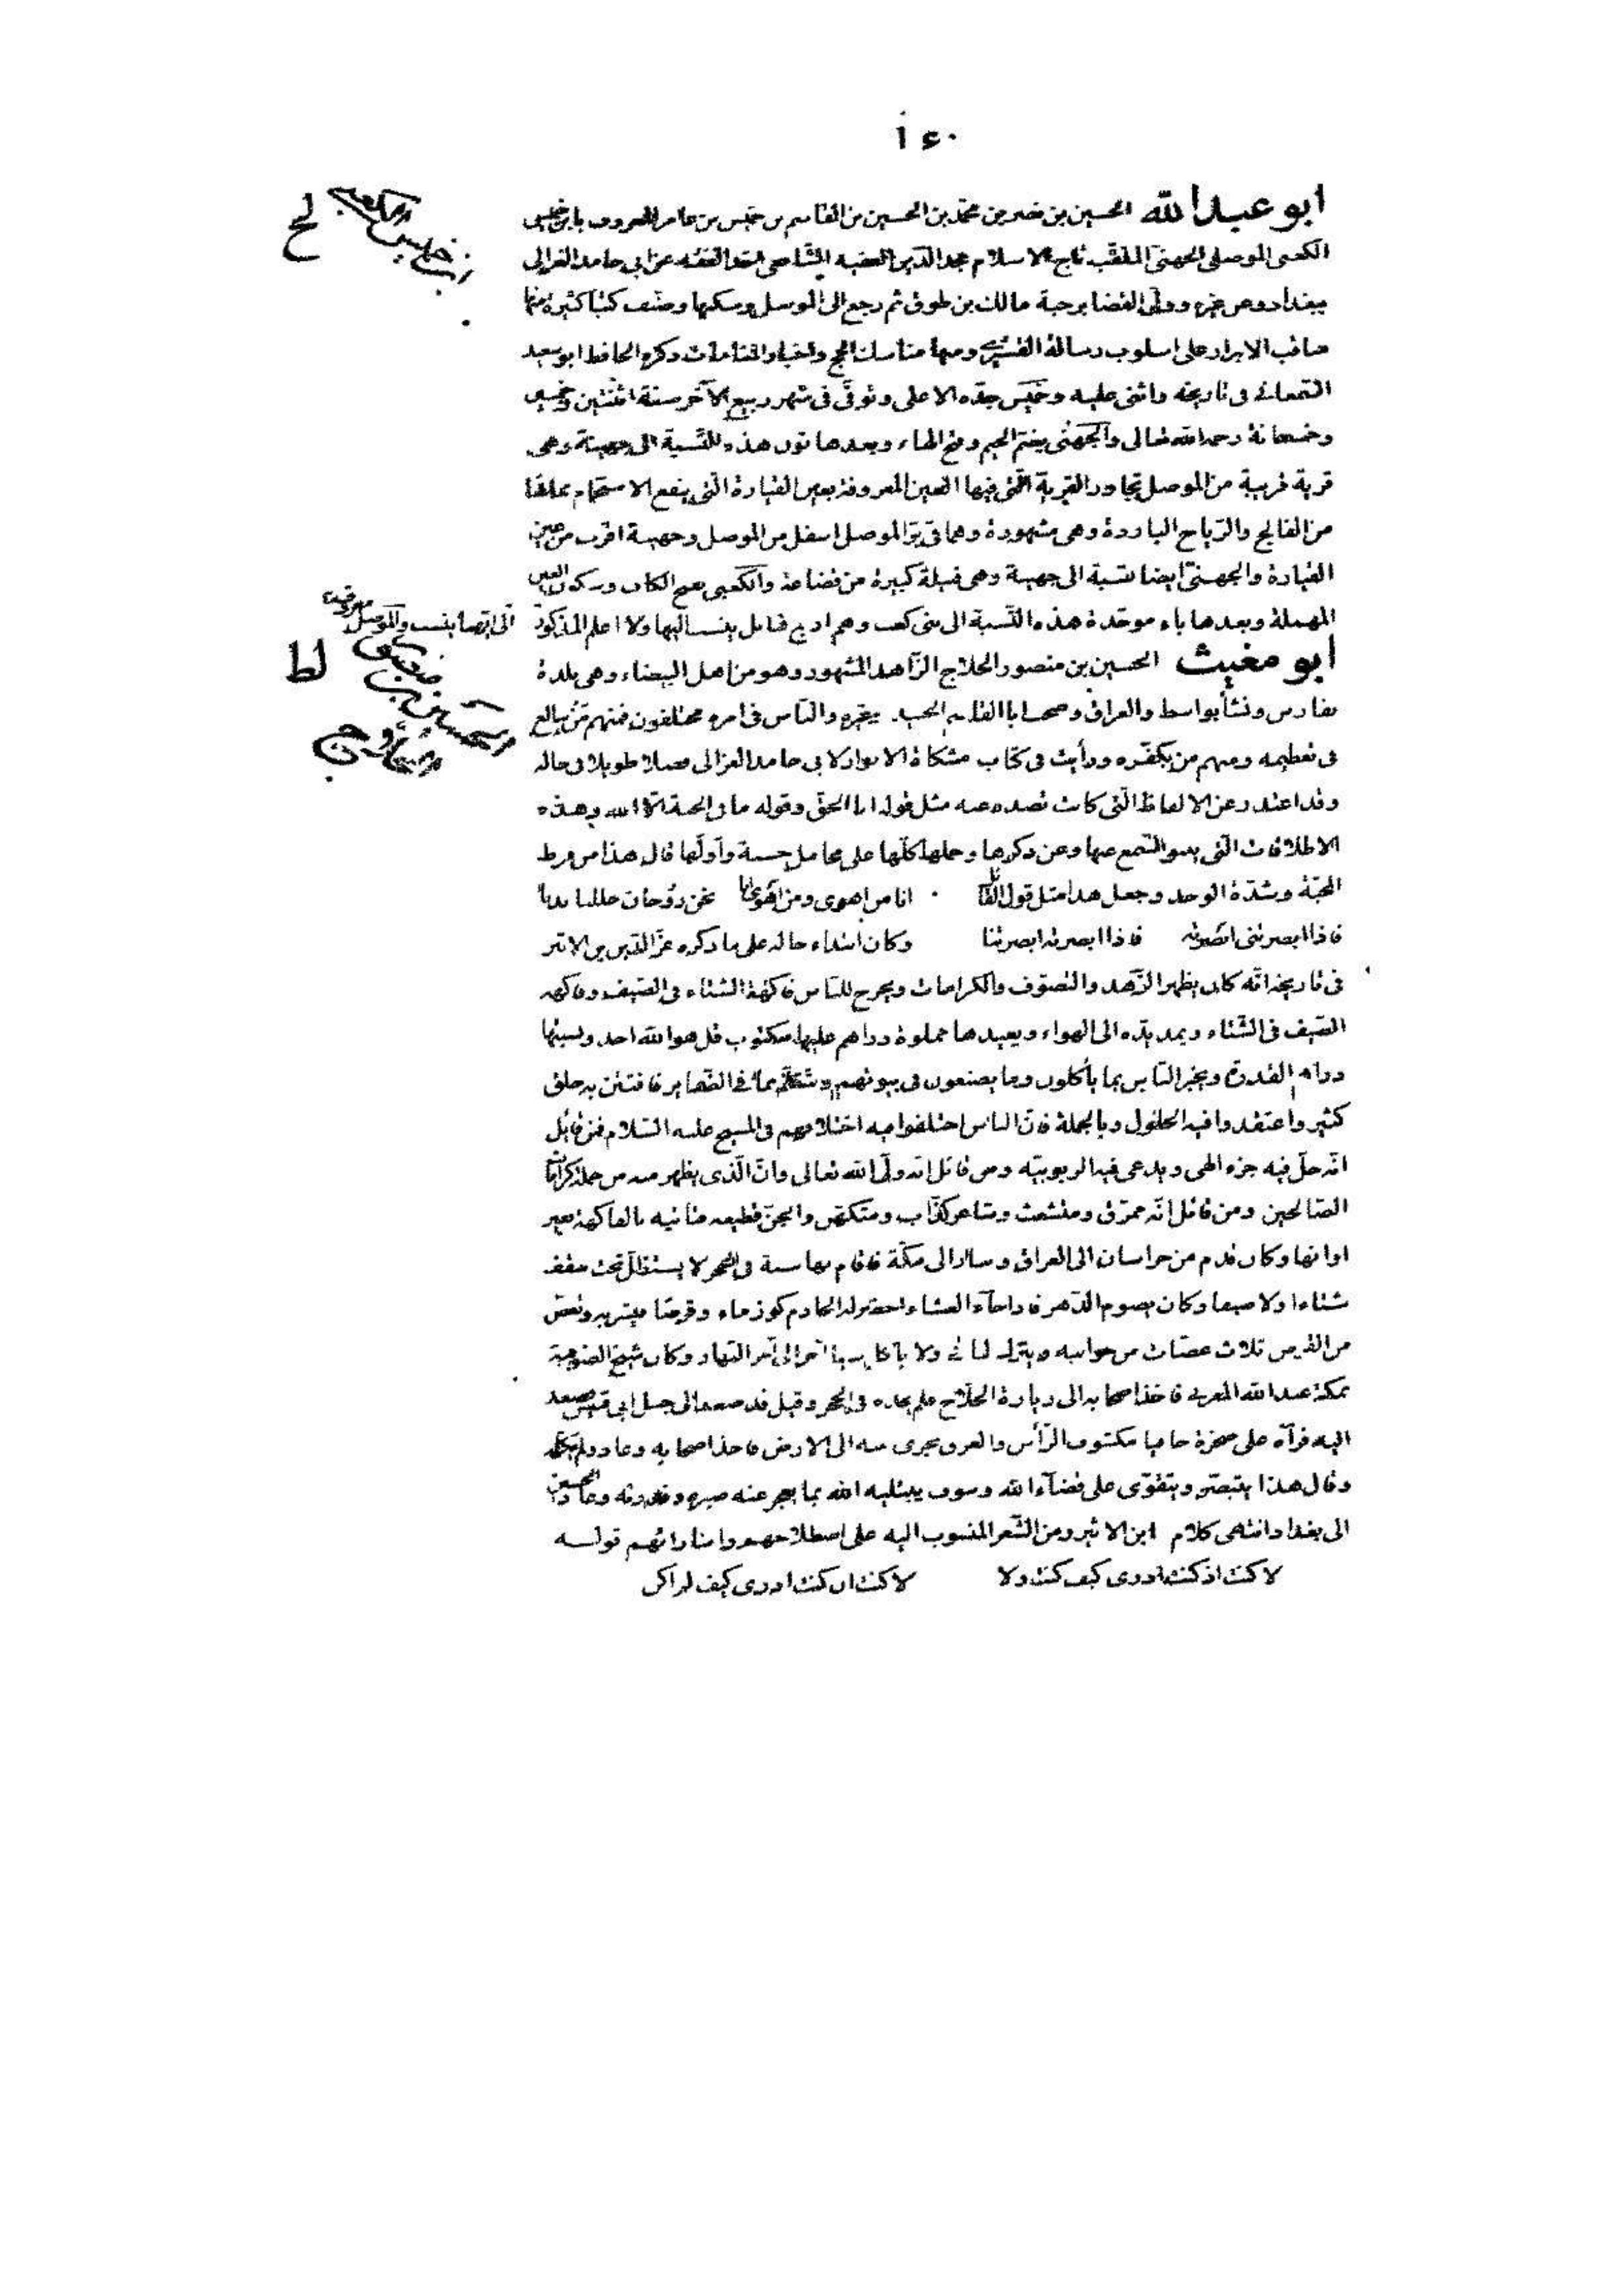 ١٤٠
ابو عبد الله الحسين بن نصر بن محمد بن الحسين بن القاسم بن خميس بن عامر المعروف بابن خميس
الكعبى الموصلى الجهنى الملقب تاج الاسلام مجد الدين الفقيه الشافعى اخذ الفقه عن ابى حامد الغزالى
ببغداد وعن غيره وولى القضا برحبة مالك بن طوق ثم رجع الى الموصل وسكنها وصنف كتبا كثيرة منها
مناقب الابرار على اسلوب رسالة القشيرى ومنها مناسك الحج واخبار المنامات ذكره الحافظ ابو سعيد
السمعانى فى تاريخه واثنى عليه وخميس جدّه الاعلى وتوفّى فى شهر ربيع الآخر سنة اثنتين وخمسين
وخمسمائة رحمه الله تعالى والجهنى بضم الجيم وفتح الهاء وبعدها نون هذه النسبة الى جهينة وهى
قرية قريبة من الموصل تجاور القرية التى فيها العين المعروفة بعين القيارة التى ينفع الاستحمام بمائها
من الفالج والرّياح الباردة وهى مشهورة وهما فى برّ الموصل اسفل من الموصل وجهينة اقرب من عين
القيارة والجهنىّ ايضا نسبة الى جهينة وهى قبيلة كبيرة من قضاعة والكعبى بفتح الكاف وسكون العين
المهملة وبعدها باء موحّدة هذه النّسبة الى بنى كعب وهم اربع قبايل ينسب اليها ولا اعلم المذكور الى ايّها ينسب والموصل معروفة
لح
ابو مغيث الحسين بن منصور الحلاج الزّاهد المشهور وهو من اهل البيضاء وهى بلدة
لط
بفارس ونشأ بواسط والعراق وصحب ابا القاسم الجنيد وغيره والنّاس فى امره مختلفون فمنهم من يبالغ
فى تعظيمه ومنهم من يكفّره ورأيت فى كتاب مشكاة الانوار لابى حامد الغزالى فصلا طويلا فى حاله
وقد اعتذر عن الالفاظ الّتى كانت تصدر عنه مثل قوله انا الحق وقوله ما فى الجبة الّا الله وهذه
الاطلاقات الّتى ينبو السّمع عنها وعن ذكرها وحملها كلّها على محامل حسنة واوّلها قال هذا من فرط
المحبّة وشدّة الوجد وجعل هذا مثل قول القائل انا من اهوى ومن اهوى انا نحن روحان حللنا بدنا
فاذا ابصرتنى ابصرته فاذا ابصرته ابصرتنا وكان ابتداء حاله على ما ذكره عزّ الدّين بن الاثير
فى تاريخه انّه كان يظهر الزّهد والتصوّف والكرامات ويخرج للنّاس فاكهة الشتاء فى الصّيف وفاكهة
الصّيف فى الشّتاء ويمد يدّه الى الهواء ويعيدها مملوة دراهم عليها مكتوب قل هو الله احد ويسمّيها
دراهم القدرة ويخبر النّاس بما يأكلون وما يصنعون فى بيوتهم ويتكلم بما فى الضّماير فافتتن به خلق
كثير واعتقدوا فيه الحلول وبالجملة فانّ الناس اختلفوا فيه اختلافهم فى المسيح عليه السّلام فمن قايل
انّه حلّ فيه جزء الهى ويدعى فيه الربوبيّة ومن قائل انه ولىّ الله تعالى وانّ الّذى يظهر منه من جملة كرامات
الصّالحين ومن قائل انّه ممزّق ومتشعث وشاعر كذّاب ومتكهّن والجنّ تطيعه فتأتيه بالفاكهة بغير
اوانها وكان قدم من خراسان الى العراق وسار الى مكّة فاقام بها سنة فى الحجر لا يستظلّ تحت سقف
شتاءا ولا صيفا وكان يصوم الدّهر فاذا جآء العشاء احضر له الخادم كوز ماء وقرصا فيشربه ويعض
من القرص ثلاث عضّات من جوانبه ويترك الباقى ولا يأكل شيئا آخر الى آخر النّهار وكان شيخ الصّوفية
بمكة عبد الله المغربى فاخذ اصحابه الى زيارة الحلّاج فلم يجده فى الحجر وقيل قد صعد الى جبل ابى قبيس فصعد
اليه فرآه على صخرة حافيا مكشوف الرّأس والعرق يجرى منه الى الارض فاخذ اصحابه وعاد ولم يكلمه
وقال هذا يتصبّر ويتقوّى على قضآء الله وسوف يبتليه الله بما يعجز عنه صبره وقدرته وعاد الحسين
الى بغداد انتهى كلام ابن الاثير ومن الشّعر المنسوب اليه على اصطلاحهم واشاراتهم قوله
لا كنت اذ كنت ادرى كيف كنت ولا لا كنت ان كنت ادرى كيف لم اكن